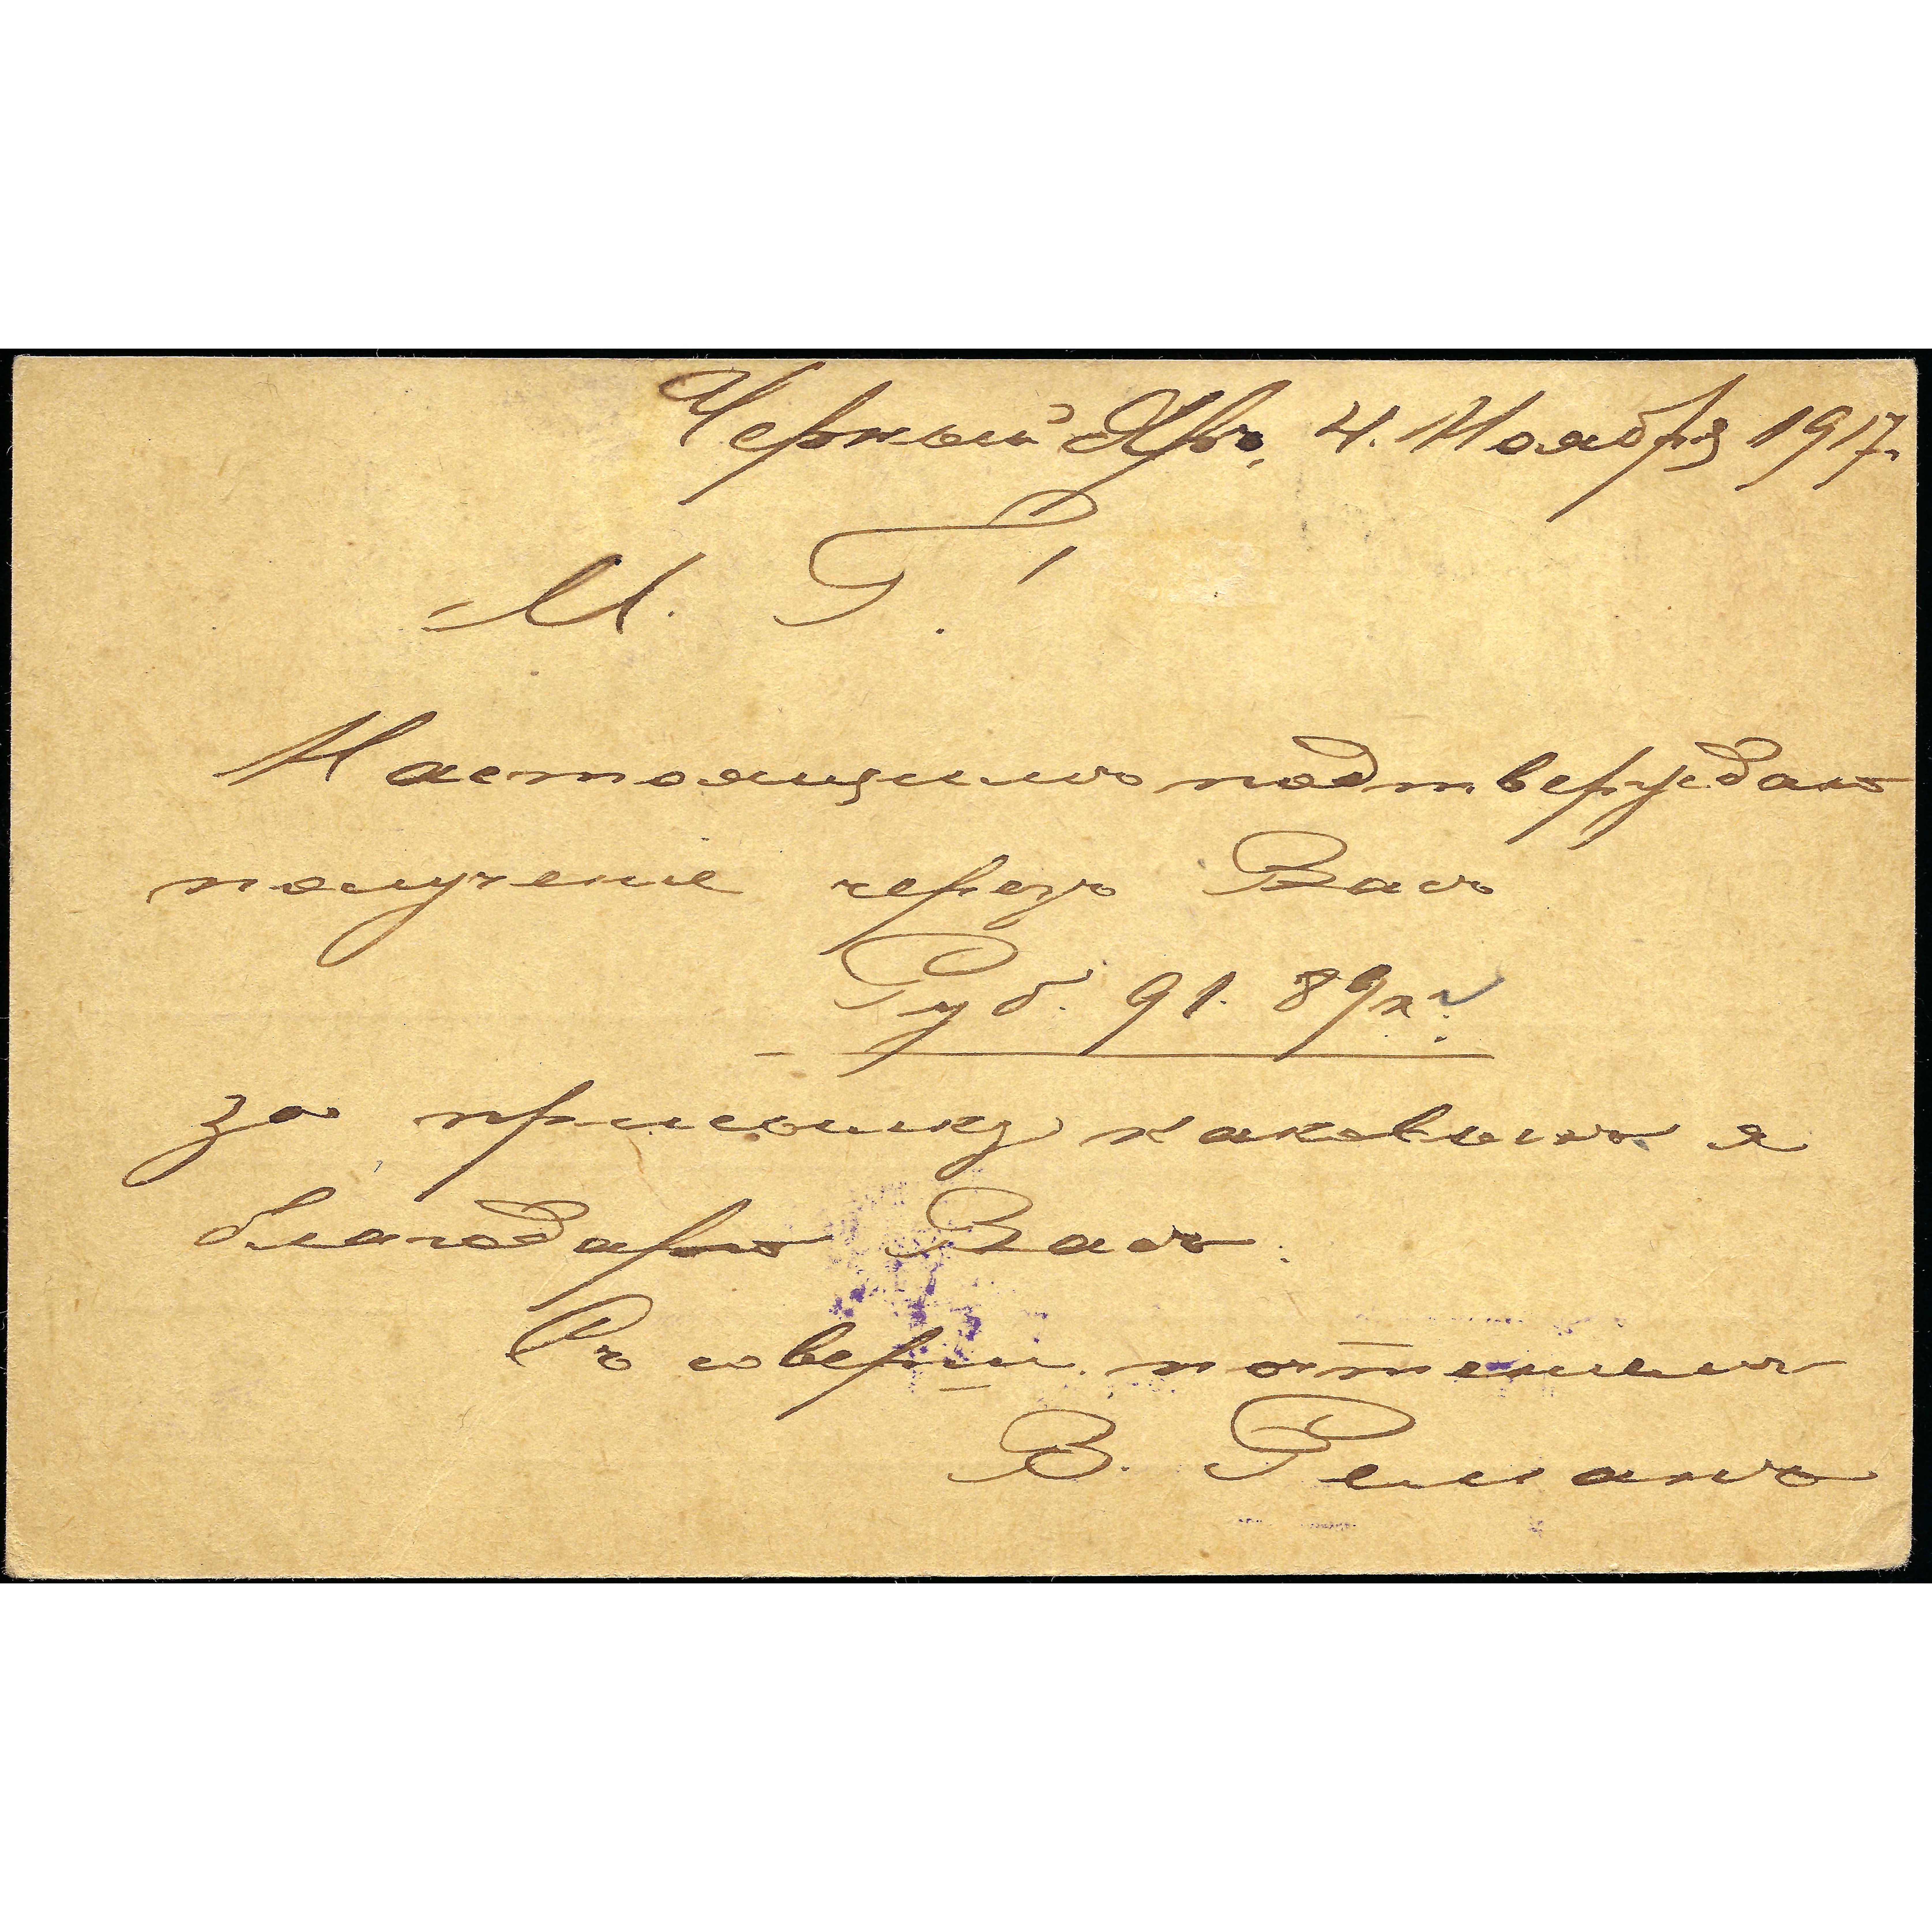 Черный Яръ, 4. Ноября 1917.
М. Г.
Настоящимъ подтверждаю
полученіе черезъ Васъ
Руб. 91. 89 к.
за присылку каковыхъ я
благодарю Васъ.
Съ соверш. почтеніемъ
В. Реманъ